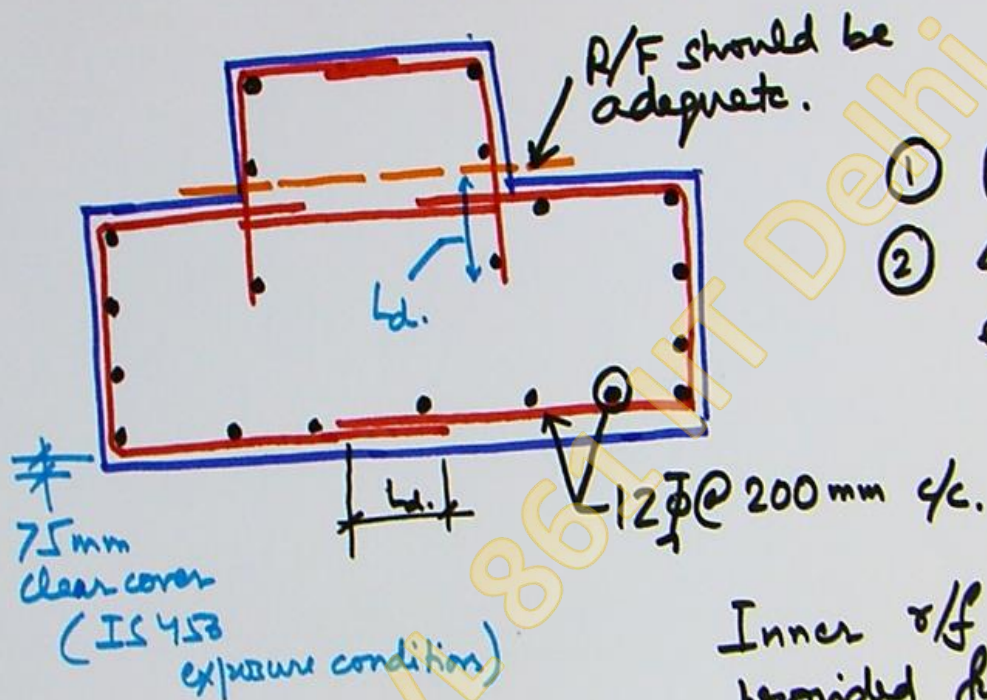 R/F should be
adequate.
①
②
Ld.
Ld.
12Φ@ 200 mm c/c.
75mm
clear cover
(IS 456
exposure condition)
Inner r/f
provided
CVL 861 IIT Delhi